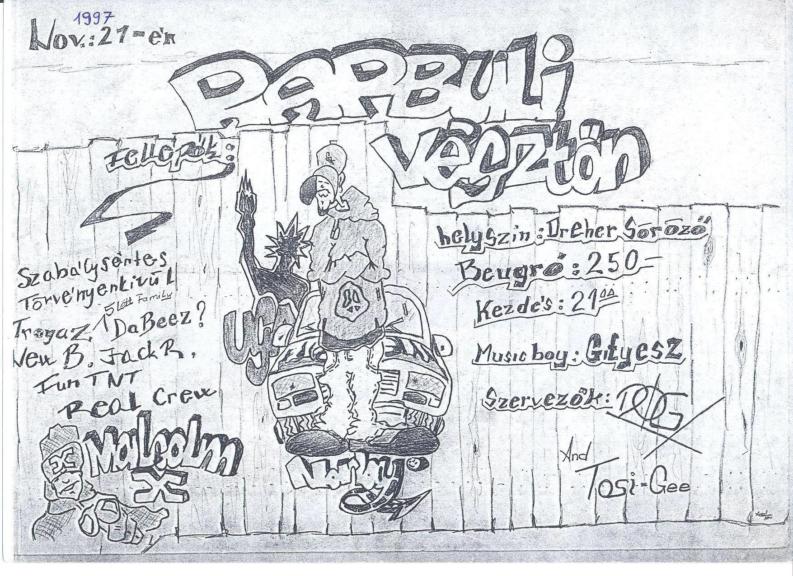 1997
Nov.: 21-én
RAPBULI
Vésztőn
Fellépők:
Szabálysértes
Törvényenkivül
5Lett Family
Tragaz DaBeez?
New B. Jack R.
Fun TNT
Real Crew
Malcolm
X
helyszin: Dreher Söröző
Beugró: 250-
Kezdés: 21 00
Music boy: Gityesz
Szervezők:
And
Tosi-Gee